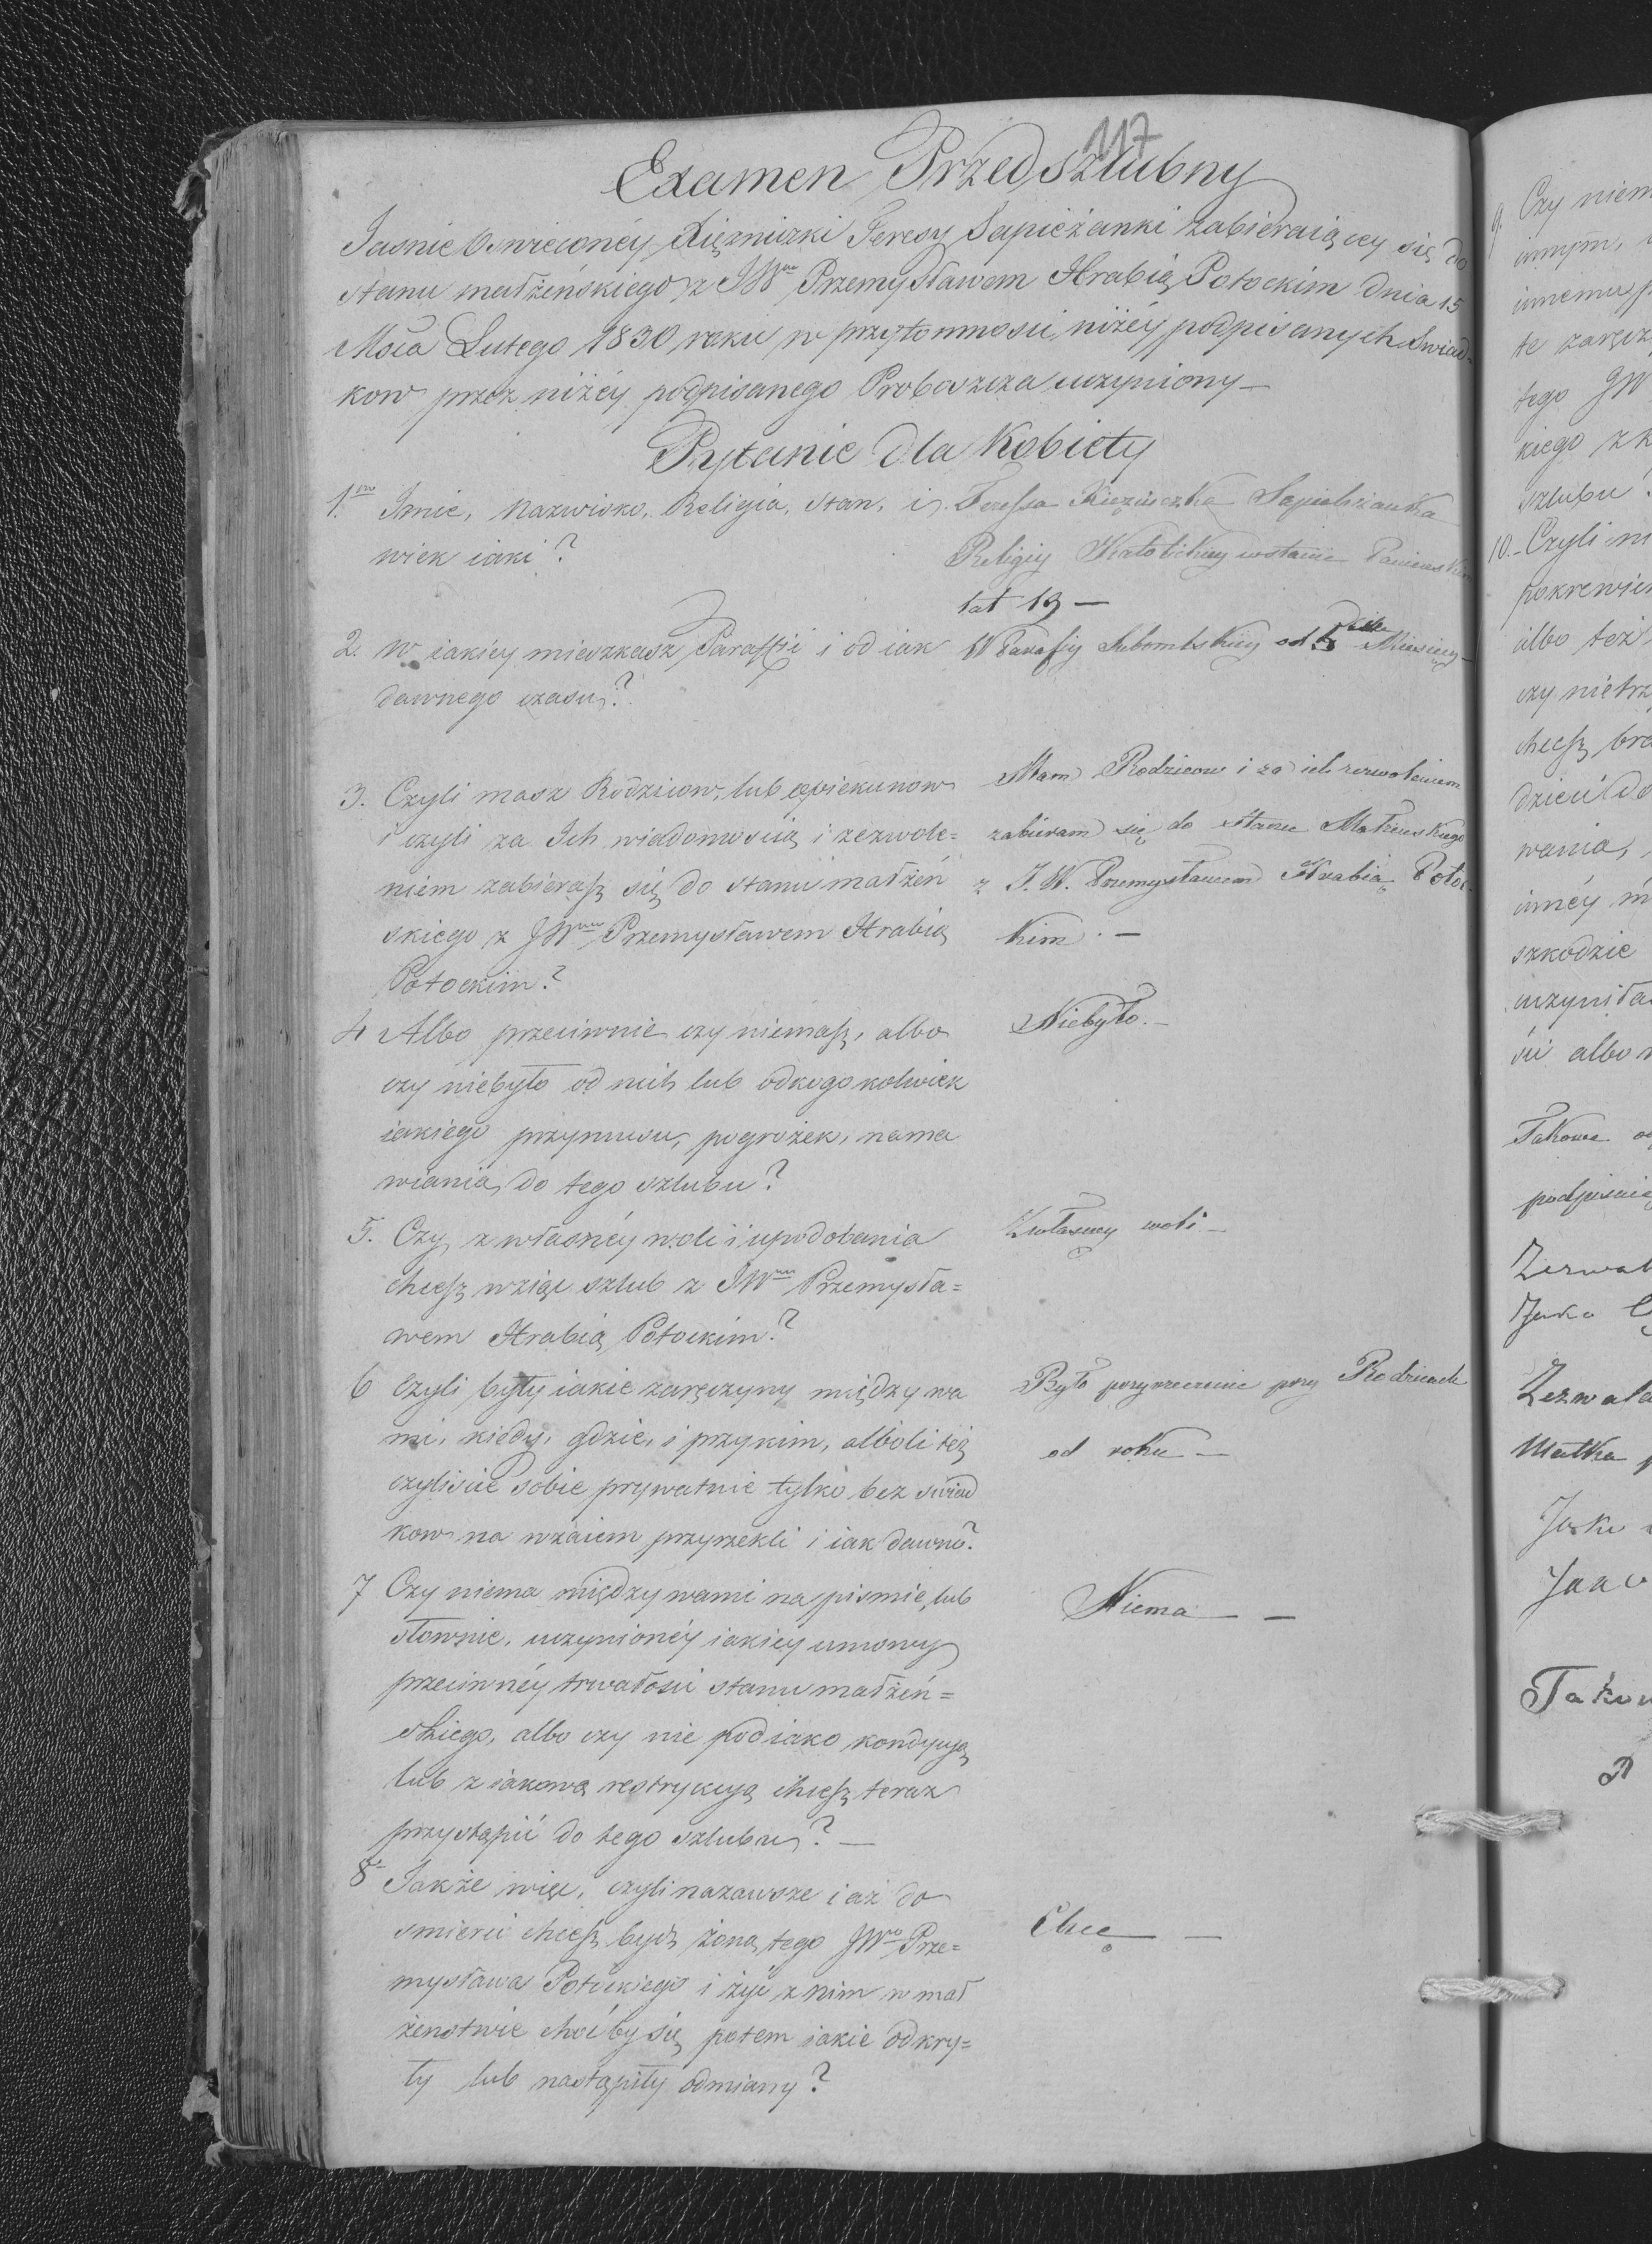 117
Examen Przedszlubny
Jaśnie Oswieconéy Xiężniczki Teresy Sapieżanki zabieraiącey się do
stanu małżeńskiego z JWm Przemysławem Hrabią Potockim dnia 15
Mca Lutego 1830 roku w przytomnosci niżéy podpisanych Swiad-
kow przez niżéy podpisanego Proboszcza uczyniony –
Pytanie dla Kobiety
1mo Imie, Nazwisko, Religia, stan, i
wiek iaki?
Teressa Xięzniczka Sapiezanka
Religiy Katolickiey w stanie Panienskim
lat 19 –
2. W iakiey mieszkasz Paraffii i od iak
dawnego czasu?
W Parafiy od Miesięcy –
3. Czyli masz Rodzicow, lub opiekunow
i czyli za Ich wiadomoscią i zezwole=
niem zabierasz się do stanu małżeń
skiego z JWm Przemysławem Hrabią
Potockim?
Mam Rodzicow i za ich zezwoleniem
zabieram się do stanu Małzenskiego
z J. W. Przemysławem Hrabią Potoc-
kim. –
4 Albo przeciwnie czy niemasz, albo
czy niebyło od nich lub od kogokolwiek
iakiego przymusu, pogrożek, nama
wiania do tego szlubu?
Niebyło. –
5. Czy z własnéy woli i upodobania
chcesz wziąć szlub z JWm Przemysła=
wem Hrabią Potockim?
Z własney woli –
6 Czyli były iakie zaręczyny między wa
mi, kiedy, gdzie, i przy kim, alboli też
czyliscie sobie prywatnie tylko bez swiad
kow na wzaiem przyrzekli i iak dawno?
Było przyrzeczenie przy Rodzicach
od roku –
7 Czy niema między wami na pismie, lub
słownie, uczynionéy iakiey umowy
przeciwnéy trwałosci stanu małżeń=
skiego, albo czy nie pod iako kondycyą
lub z iakową restrykcyą chcesz teraz
przystąpić do tego szlubu? –
Niema – –
8o Jakże więc, czyli nazawsze i aż do
smierci chcesz bydź żoną tego JWo Prze=
mysława Potockiego i żyć z nim w mał
żenstwie choćby się potem iakie odkry=
ły lub nastąpiły odmiany?
Chcę –
9. Czy niem
innym,
innemu p
te zaręcz
tego JW
kiego z k
szlubu
10. – Czyli ni
pokrewień
albo też
czy nietrz
chcesz bra
dzieci do
wania,
innéy m
szkodzie
uczyniła
ści albo
Takowe
podpisuię
Zezwal
Jako
Zezwala
Matka p
Jako
Jako
Takow